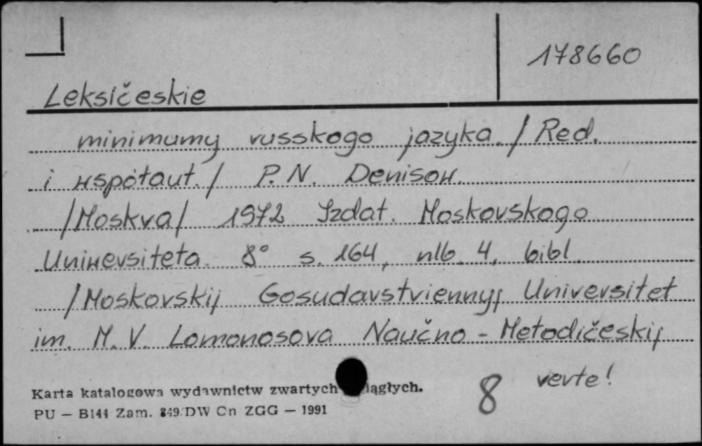 178660
Leksičeskie
minimumy russkogo jazyka. / Red.
i współaut. / P. N. Denisow.
/Moskva/ 1972 Izdat. Moskovskogo
Universiteta. 8° s. 164, nlb. 4, bibl.
/Moskovskij Gosudarstviennyj Universitet
im. M. V. Lomonosova Naučno - Metodičeskij
Karta katalogowa wydawnictw zwartych ciągłych.
PU — B144 Zam. 849/DW Cn ZGG — 1991
8 verte!